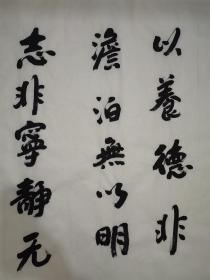 以養德非
澹泊無以明
志非寧靜无